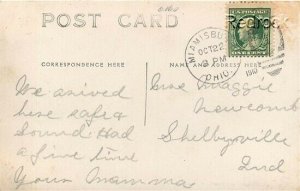 POST CARD
Ohio
Redroc
MIAMISBU
OCT 22
PM
OHIO
191
CORRESPONDENCE HERE
NAME AND ADDRESS HERE
We arived
here safe &
Sound Had
a fine time
Your Mamma
Miss Maggie
Newcomb
Shelbyville
Ind